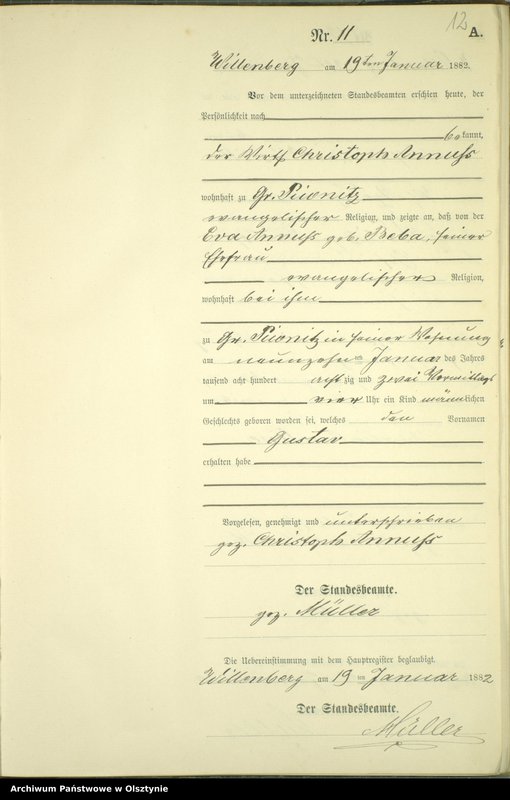 12
Nr. 11 A.
Willenberg am 19ten Januar 1882.
Vor dem unterzeichneten Standesbeamten erschien heute, der
Persönlichkeit nach
bekannt,
der Wirth Christoph Annuss
wohnhaft zu Gr. Piwnitz
evangelischer Religion, und zeigte an, daß von der
Eva Annuss geb. Beba, seiner
Ehefrau
evangelischer Religion,
wohnhaft bei ihm
zu Gr. Piwnitz in seiner Wohnung
am neunzehnten Januar des Jahres
tausend acht hundert achtzig und zwei Vormittags
um vier Uhr ein Kind männlichen
Geschlechts geboren worden sei, welches den Vornamen
Gustav
erhalten habe
Vorgelesen, genehmigt und unterschrieben
gez. Christoph Annuss
Der Standesbeamte.
gez. Müller
Die Uebereinstimmung mit dem Hauptregister beglaubigt.
Willenberg am 19ten Januar 1882
Der Standesbeamte.
Müller
Archiwum Państwowe w Olsztynie